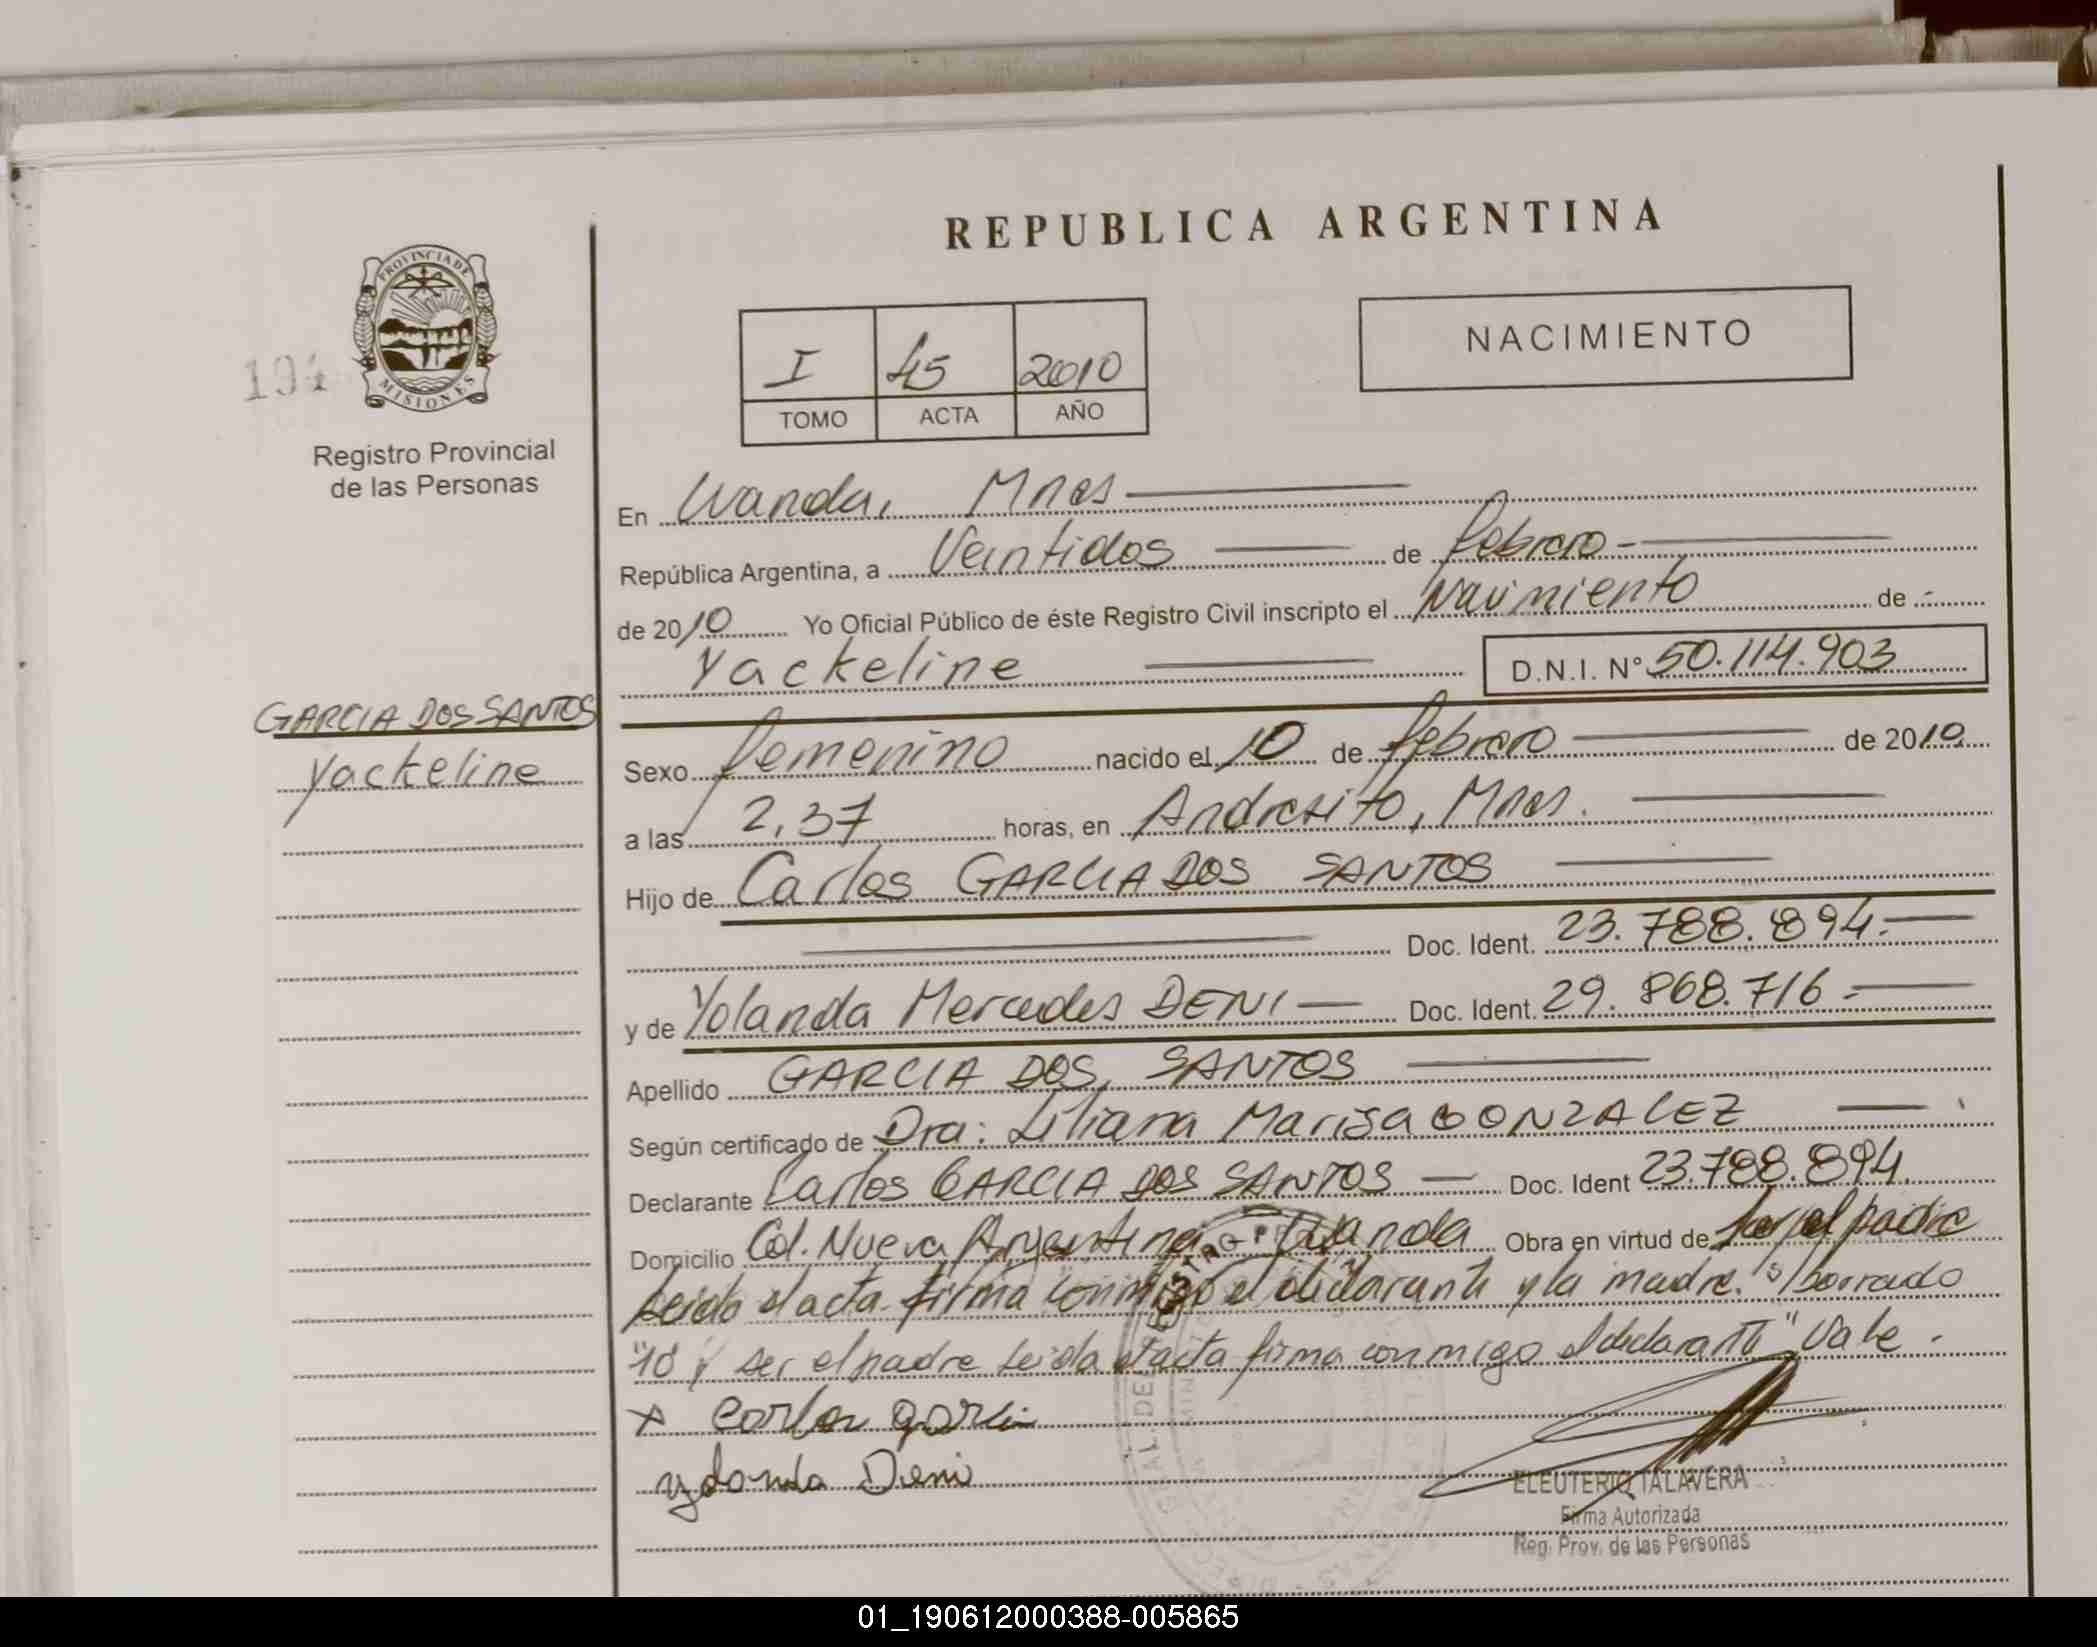 REPUBLICA ARGENTINA
PROVINCIA DE
MISIONES
Registro Provincial
de las Personas
I 45 2010
TOMO ACTA AÑO
NACIMIENTO
En Wanda, Mnes
República Argentina, a Veintidos de febrero
de 2010 Yo Oficial Público de éste Registro Civil inscripto el Nacimiento de
Yackeline D.N.I. N° 50.114.903
GARCIA DOS SANTOS
Yackeline
Sexo femenino nacido el 10 de febrero de 2010
a las 2,37 horas, en Andresito, Mnes.
Hijo de Carlos GARCIA DOS SANTOS
Doc. Ident. 23.788.894.
y de Yolanda Mercedes DENI Doc. Ident. 29.868.716
Apellido GARCIA DOS SANTOS
Según certificado de Dra: Liliana Marisa GONZALEZ
Declarante Carlos GARCIA DOS SANTOS Doc. Ident 23.788.894.
Domicilio Col. Nueva Argentina Wanda Obra en virtud de ser el padre
Leida el acta firma conmigo el declarante y la madre. s/borrado
"10 y ser el padre Leida el acta firma conmigo el declarante" Vale.
x carlos garcia
yolanda Deni
ELEUTERIO TALAVERA
Firma Autorizada
Reg. Prov. de las Personas
01_190612000388-005865